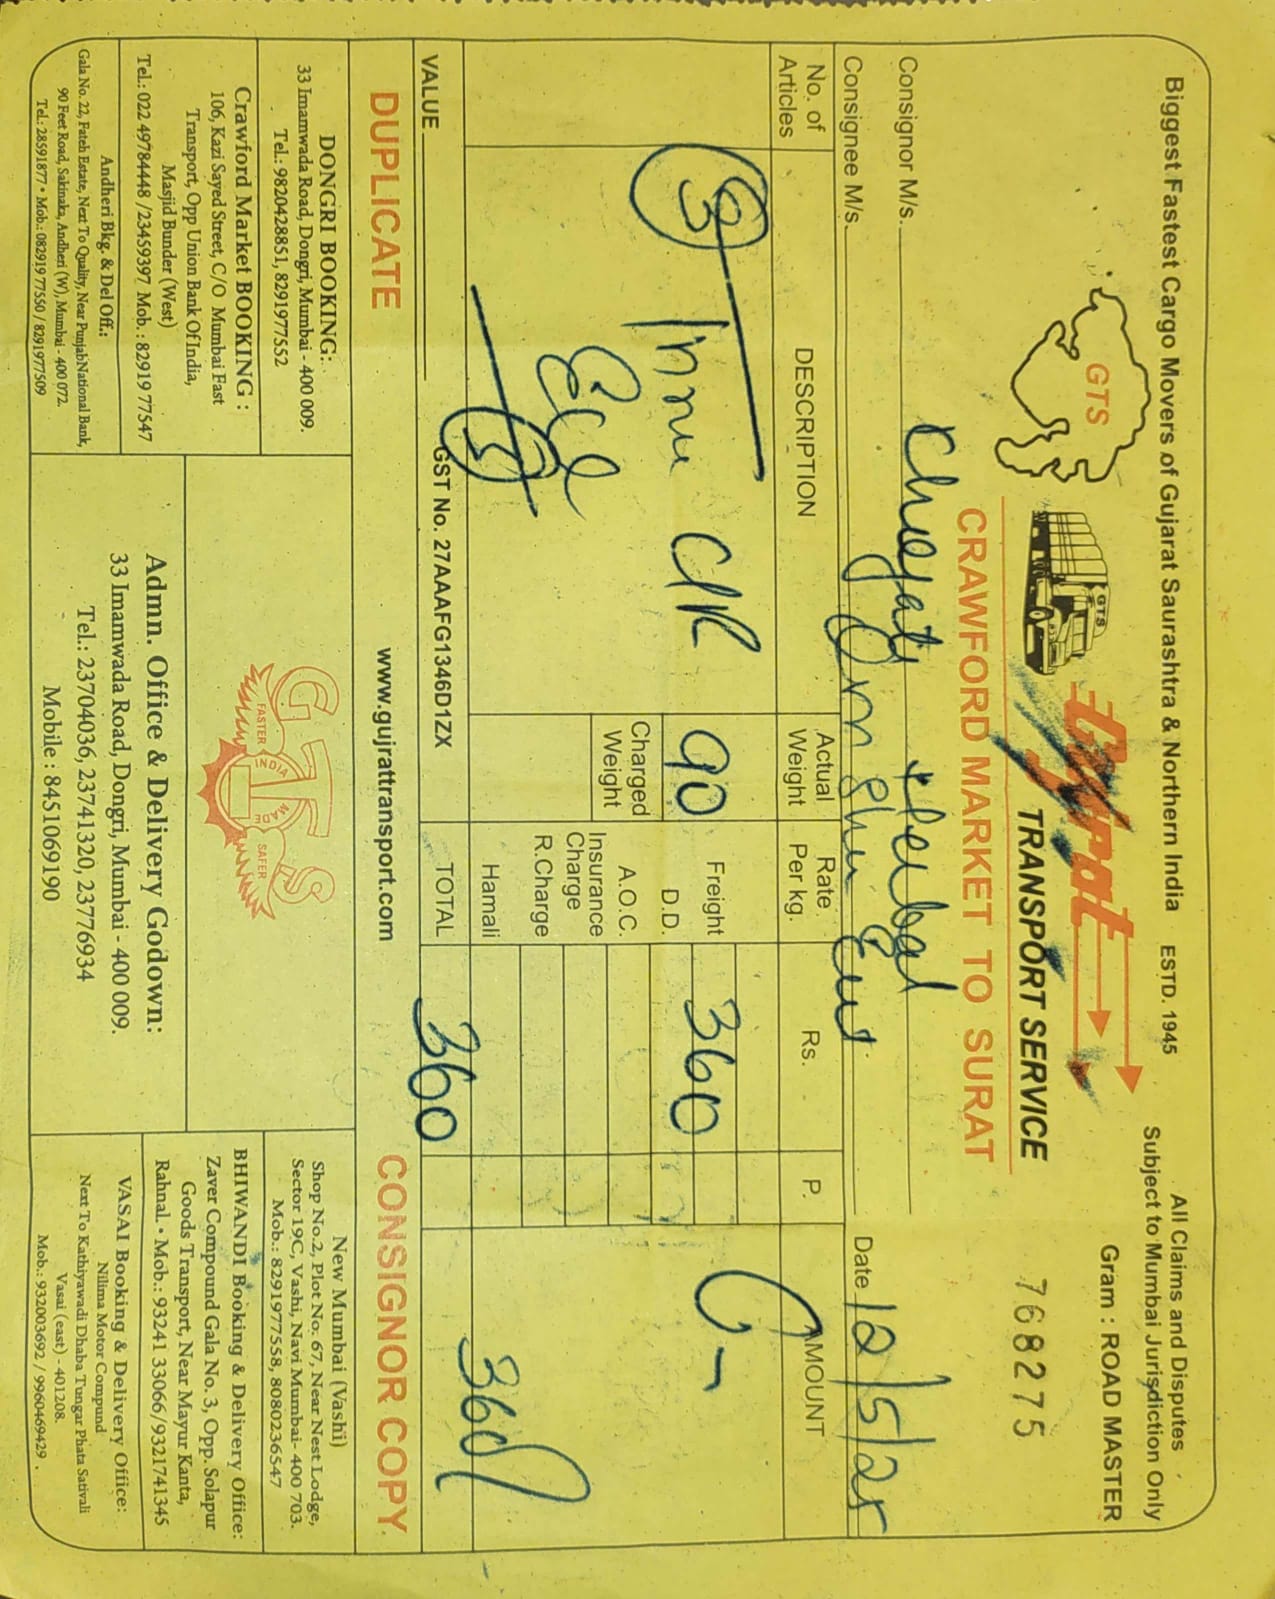 Biggest Fastest Cargo Movers of Gujarat Saurashtra & Northern India ESTD. 1945
All Claims and Disputes
Subject to Mumbai Jurisdiction Only
Gram : ROAD MASTER
GTS
GTS
Gujrat
TRANSPORT SERVICE
CRAWFORD MARKET TO SURAT
768275
Consignor M/s. Herbal
Consignee M/s. Om Shiv Ent
Date 12/5/25
No. of Articles
DESCRIPTION
Actual Weight
Rate Per kg.
Rs.
P.
AMOUNT
3
90
Freight 360
D.D.
Charged Weight
A.O.C.
Insurance Charge
R.Charge
Hamali
360
VALUE
GST No. 27AAAFG1346D1ZX
TOTAL 360
DUPLICATE
www.gujrattransport.com
CONSIGNOR COPY
DONGRI BOOKING:
33 Imamwada Road, Dongri, Mumbai - 400 009.
Tel.: 9820428851, 8291977552
Crawford Market BOOKING :
106, Kazi Sayed Street, C/O Mumbai Fast
Transport, Opp Union Bank Of India,
Masjid Bunder (West)
Tel.: 022 49784448 /23459397 Mob. : 82919 77547
Andheri Bkg. & Del Off.:
Gala No. 22, Fateh Estate, Next To Quality, Near Punjab National Bank,
90 Feet Road, Sakinaka, Andheri (W), Mumbai - 400 072.
Tel.: 28591877 • Mob.: 082919 77550 / 8291977509
GTS
FASTER
INDIA
MADE
SAFER
Admn. Office & Delivery Godown:
33 Imamwada Road, Dongri, Mumbai - 400 009.
Tel.: 23704036, 23741320, 23776934
Mobile : 8451069190
New Mumbai (Vashi)
Shop No.2, Plot No. 67, Near Nest Lodge,
Sector 19C, Vashi, Navi Mumbai- 400 703.
Mob.: 8291977558, 8080236547
BHIWANDI Booking & Delivery Office:
Zaver Compound Gala No. 3, Opp. Solapur
Goods Transport, Near Mayur Kanta,
Rahnal. • Mob.: 93241 33066/9321741345
VASAI Booking & Delivery Office:
Nilima Motor Compund
Next To Kathiyawadi Dhaba Tungar Phata Sativali
Vasai (east) - 401208.
Mob.: 932003692 / 9960469429 .